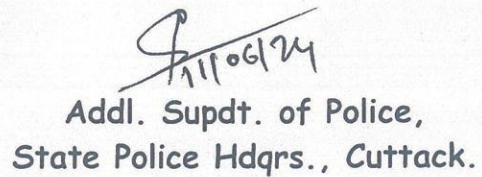 11/06/24
Addl. Supdt. of Police,
State Police Hdqrs., Cuttack.